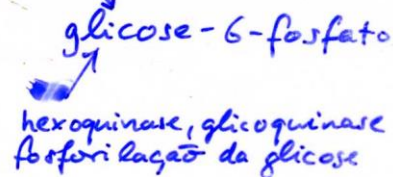 glicose-6-fosfato
hexoquinase, glicoquinase
fosforilação da glicose